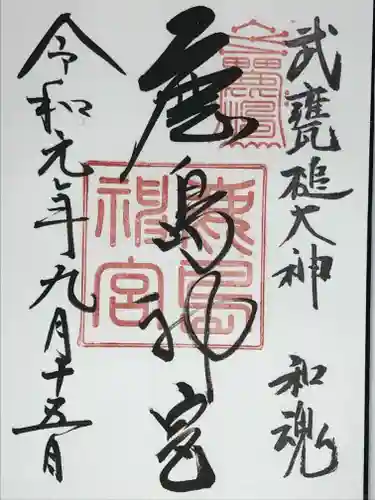 武甕槌大神 和魂
鹿島神宮
令和元年九月十五日
鹿島神宮